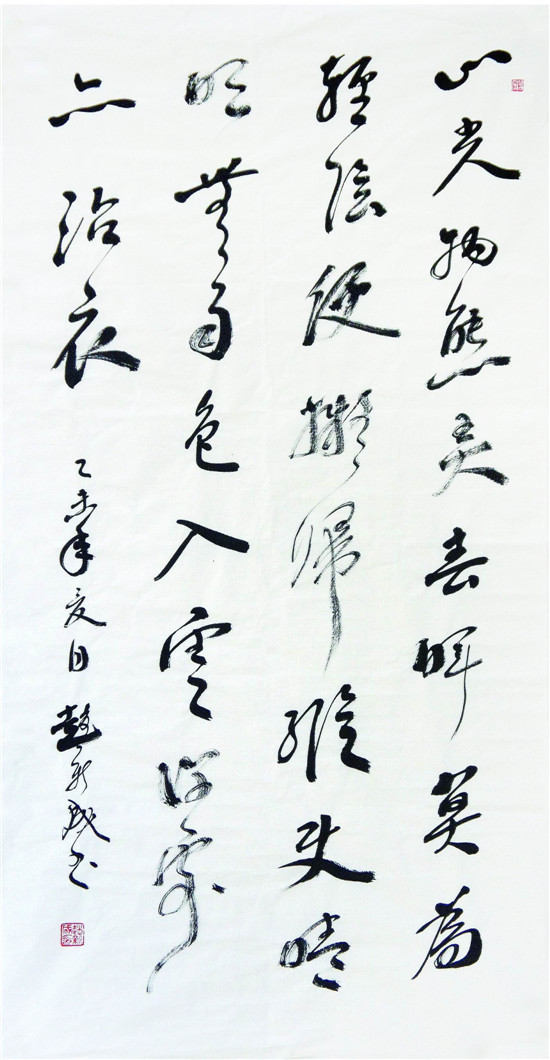 山光物態弄春暉莫為
輕陰便擬歸縱使晴
明無雨色入雲深處
亦沾衣
乙未年夏日 趙新書